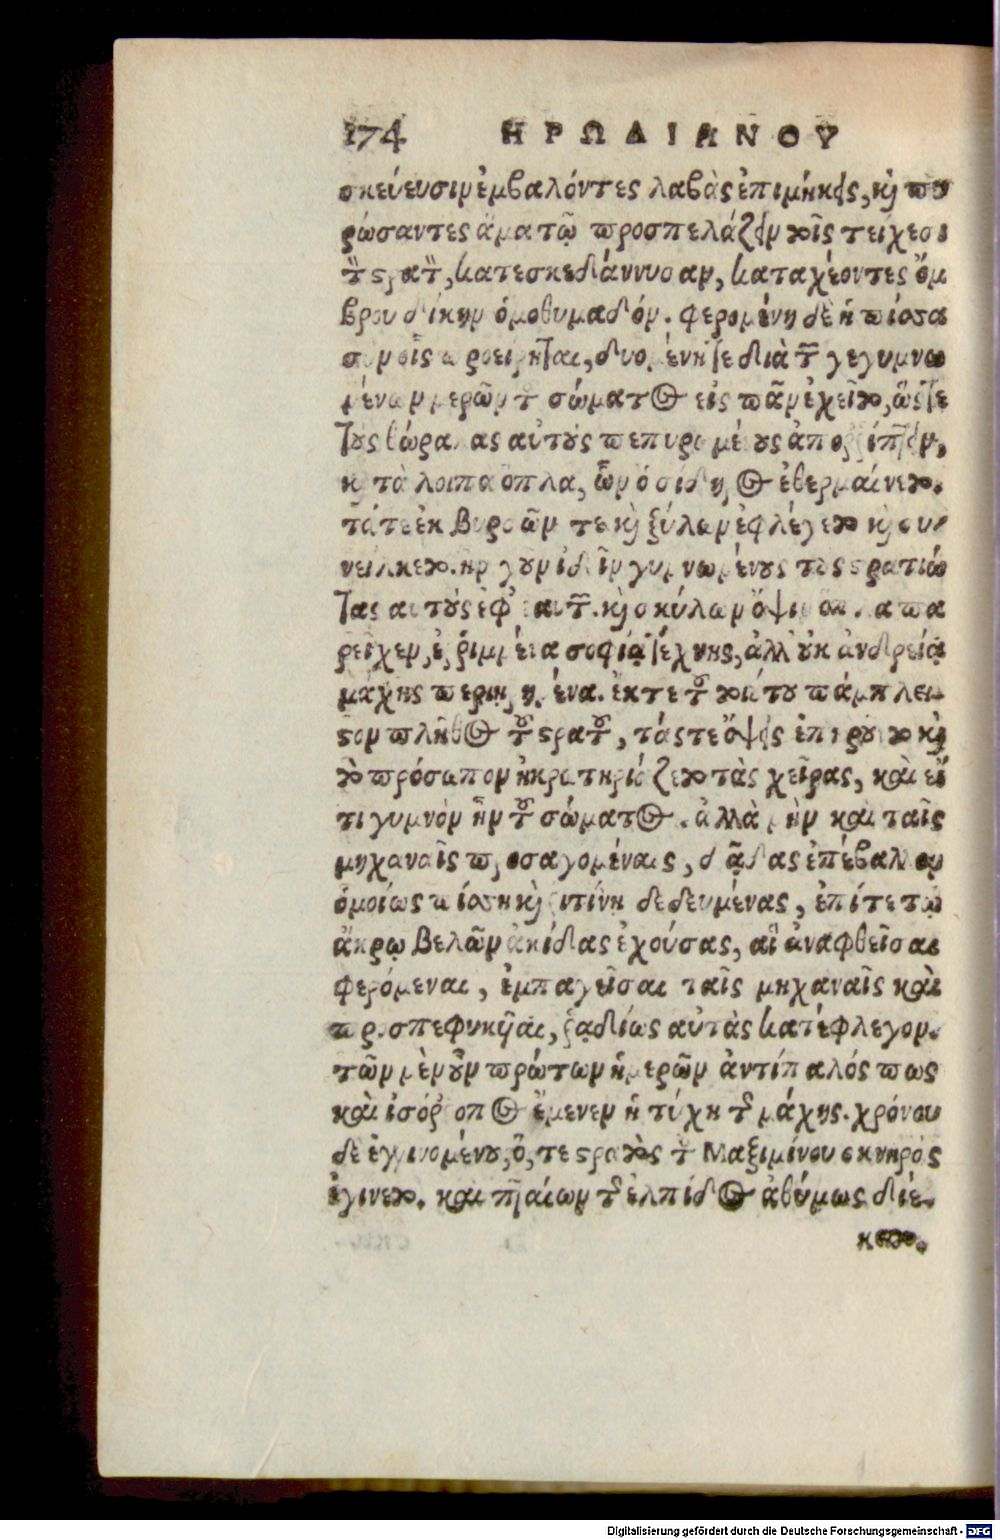 174 ΗΡΩΔΙΑΝΟΥ
σκεύευσιν ἐμβαλόντες λαβὰς ἐπιμήκεις, καὶ πυ
ρώσαντες ἅμα τῷ προσπελάζειν τοῖς τείχεσι
τὸν στρατὸν, κατεσκεδάννυσαν, καταχέοντες ὄμ
βρου δίκην ὁμοθυμαδόν. φερομένη δὲ ἡ πίσσα
σὺν οἷς προείρηται, δυομένη τε διὰ τῶν γεγυμνω
μένων μερῶν τοῦ σώματος εἰς πᾶν ἐχεῖτο, ὥστε
τοὺς θώρακας αὐτοὺς πεπυρωμένους ἀπορρίπτειν,
καὶ τὰ λοιπὰ ὅπλα, ὧν ὁ σίδηρος ἐθερμαίνετο.
τά τε ἐκ βυρσῶν τε καὶ ξύλων ἐφλέγετο καὶ συ
νείλκετο. ἦν γοῦν ἰδεῖν γυμνωμένους τοὺς στρατιώ
τας αὐτοὺς ἐφ' ἑαυτῶν. καὶ σκύλων ὄψιν ὅπλα πα
ρεῖχεν, ἐρριμμένα σοφίᾳ τέχνης, ἀλλ' οὐκ ἀνδρείᾳ
μάχης περιῃρημένα. ἔκ τε τοῦ τοιούτου πάμπλει-
στον πλῆθος τοῦ στρατοῦ, τάς τε ὄψεις ἐπηροῦντο καὶ
τὸ πρόσωπον ἠκρωτηριάζετο τὰς χεῖρας, καὶ εἴ
τι γυμνὸν ἦν τοῦ σώματος. ἀλλὰ μὴν καὶ ταῖς
μηχαναῖς προσαγομέναις, δᾷδας ἐπέβαλλον
ὁμοίως πίσσῃ καὶ ῥητίνῃ δεδευμένας, ἐπί τε τῷ
ἄκρῳ βελῶν ἀκίδας ἐχούσας, αἳ ἀναφθεῖσαι
φερόμεναι, ἐμπαγεῖσαι ταῖς μηχαναῖς καὶ
προσπεφυκυῖαι, ῥᾳδίως αὐτὰς κατέφλεγον.
τῶν μὲν οὖν πρώτων ἡμερῶν ἀντίπαλός πως
καὶ ἰσόρροπος ἔμενεν ἡ τύχη τῆς μάχης. χρόνου
δὲ ἐγγινομένου, ὅ, τε στρατὸς τοῦ Μαξιμίνου ὀκνηρὸς
ἐγίνετο. καὶ πταίων τῆς ἐλπίδος ἀθύμως διέ-
κειτο.
Digitalisierung gefördert durch die Deutsche Forschungsgemeinschaft - DFG